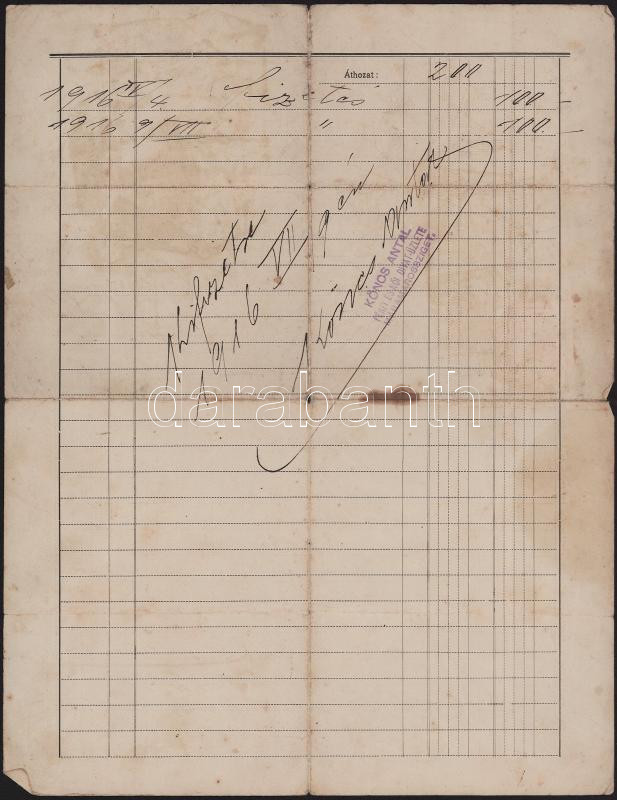 Áthozat: 200
1916 IV/4 Fizetés 100 —
1916 9/VII " 100. —
Kifizetve
1916 VII 9 én
Kónos Antal
KÓNOS ANTAL
DIVAT-ÜZLETE
darabanth